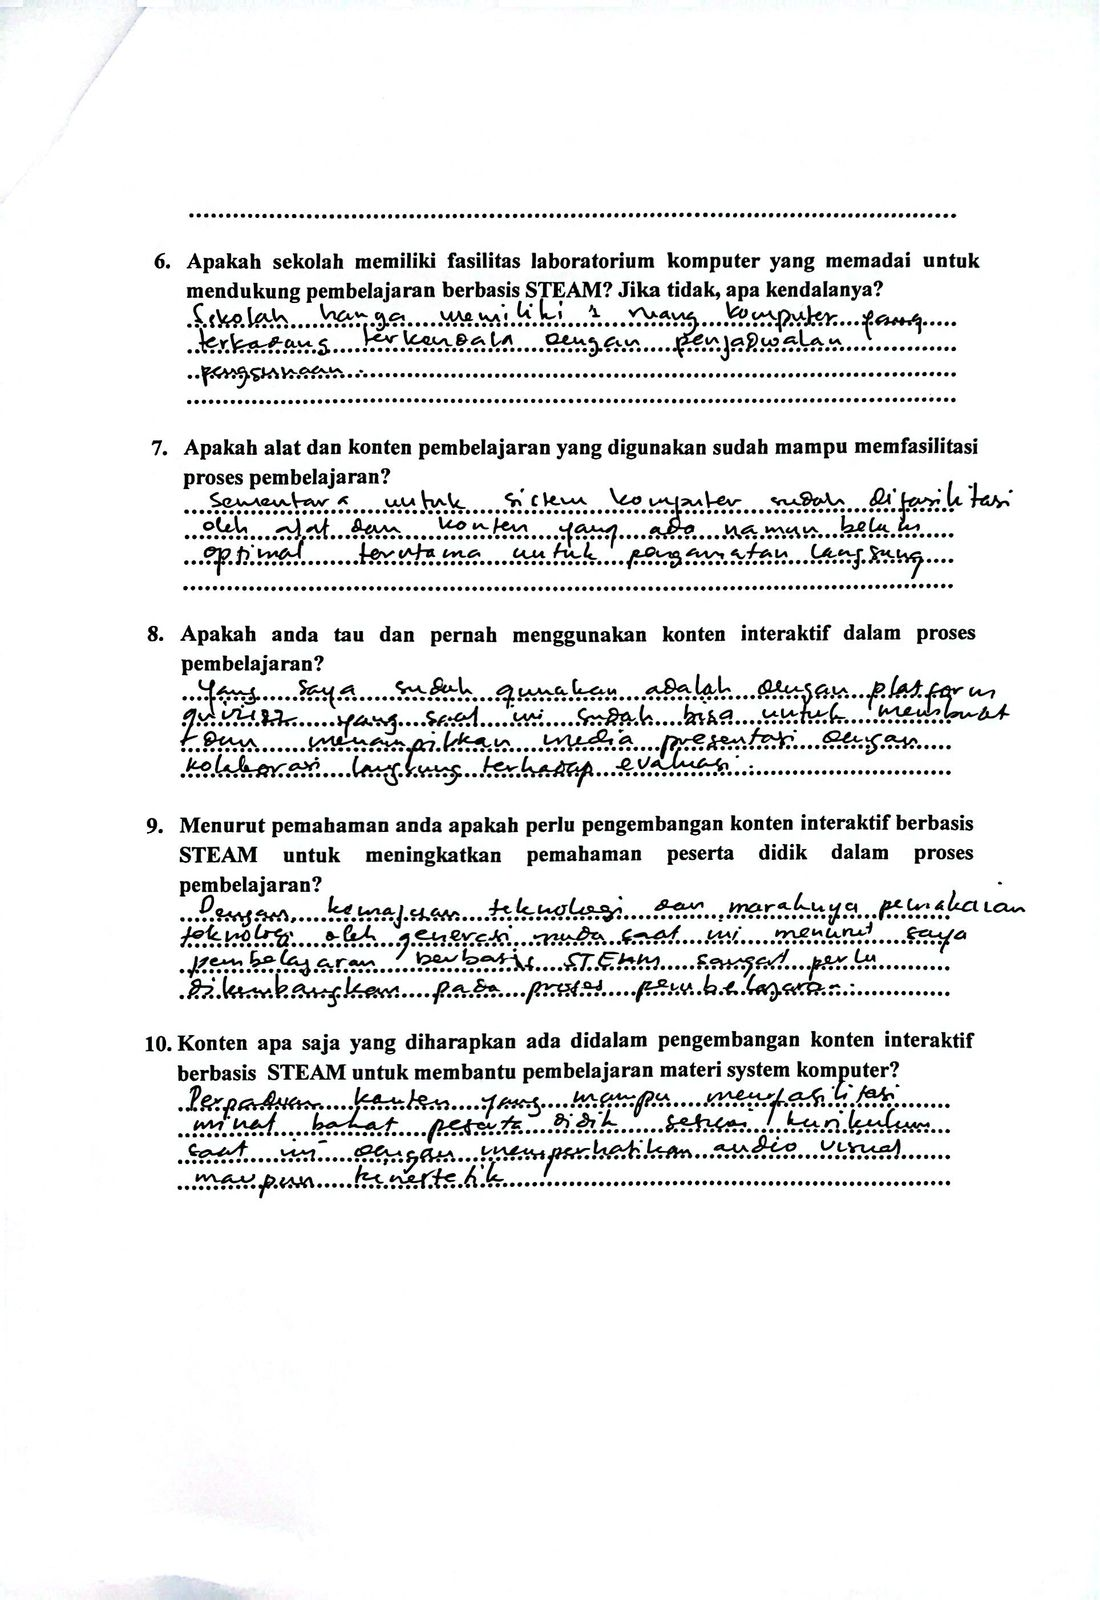 6. Apakah sekolah memiliki fasilitas laboratorium komputer yang memadai untuk
mendukung pembelajaran berbasis STEAM? Jika tidak, apa kendalanya?
Sekolah hanya memiliki 1 ruang komputer yang
terkadang terkendala dengan penjadwalan
penggunaan.
7. Apakah alat dan konten pembelajaran yang digunakan sudah mampu memfasilitasi
proses pembelajaran?
Sementara untuk sistem komputer sudah difasilitasi
oleh alat dan konten yang ada namun belum
optimal terutama untuk pengamatan langsung
8. Apakah anda tau dan pernah menggunakan konten interaktif dalam proses
pembelajaran?
Yang saya sudah gunakan adalah dengan platform
yang saat ini sudah bisa untuk membuat
dan menampilkan media presentasi dengan
kolaborasi langsung terhadap evaluasi.
9. Menurut pemahaman anda apakah perlu pengembangan konten interaktif berbasis
STEAM untuk meningkatkan pemahaman peserta didik dalam proses
pembelajaran?
Dengan kemajuan teknologi dan maraknya pemakaian
teknologi oleh generasi muda saat ini menurut saya
pembelajaran berbasis STEAM sangat perlu
dikembangkan pada proses pembelajaran.
10. Konten apa saja yang diharapkan ada didalam pengembangan konten interaktif
berbasis STEAM untuk membantu pembelajaran materi system komputer?
Perpaduan konten yang mampu memfasilitasi
minat bakat peserta didik sesuai kurikulum
saat ini dengan memperhatikan audio visual
maupun kinestetik